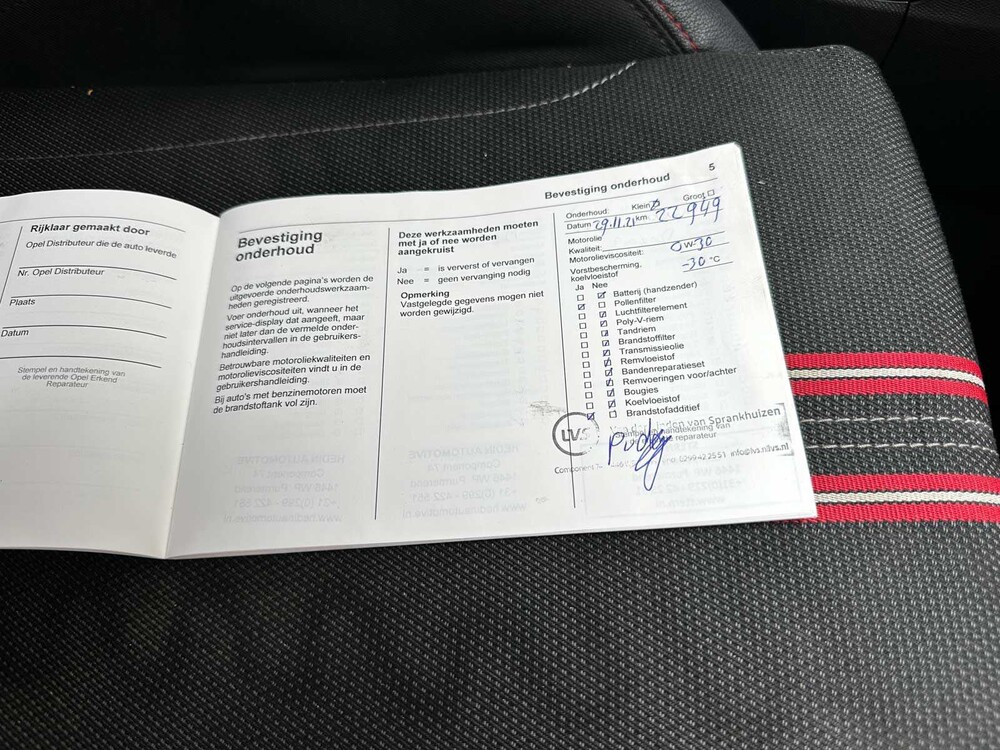 Rijklaar gemaakt door
Opel Distributeur die de auto leverde
Nr. Opel Distributeur
Plaats
Datum
Stempel en handtekening van
de leverende Opel Erkend
Reparateur
Bevestiging onderhoud
5
Bevestiging
onderhoud
Op de volgende pagina's worden de
uitgevoerde onderhoudswerkzaam-
heden geregistreerd.
Voer onderhoud uit, wanneer het
service-display dat aangeeft, maar
niet later dan de vermelde onder-
houdsintervallen in de gebruikers-
handleiding.
Betrouwbare motoroliekwaliteiten en
motorolieviscositeiten vindt u in de
gebruikershandleiding.
Bij auto's met benzinemotoren moet
de brandstoftank vol zijn.
Deze werkzaamheden moeten
met ja of nee worden
aangekruist
Ja = is ververst of vervangen
Nee = geen vervanging nodig
Opmerking
Vastgelegde gegevens mogen niet
worden gewijzigd.
Onderhoud: Klein Groot
Datum 29.11.21 km 22949
Motorolie
Kwaliteit:
Motorolieviscositeit: 0W-30
Vorstbescherming,
koelvloeistof -30 °C
Ja Nee
Batterij (handzender)
Pollenfilter
Luchtfilterelement
Poly-V-riem
Tandriem
Brandstoffilter
Transmissieolie
Remvloeistof
Bandenreparatieset
Remvoeringen voor/achter
Bougies
Koelvloeistof
Brandstofadditief
LVS
van Sprankhuizen
handtekening van
reparateur
0299422551 info@lvs.nl
lvs.nl